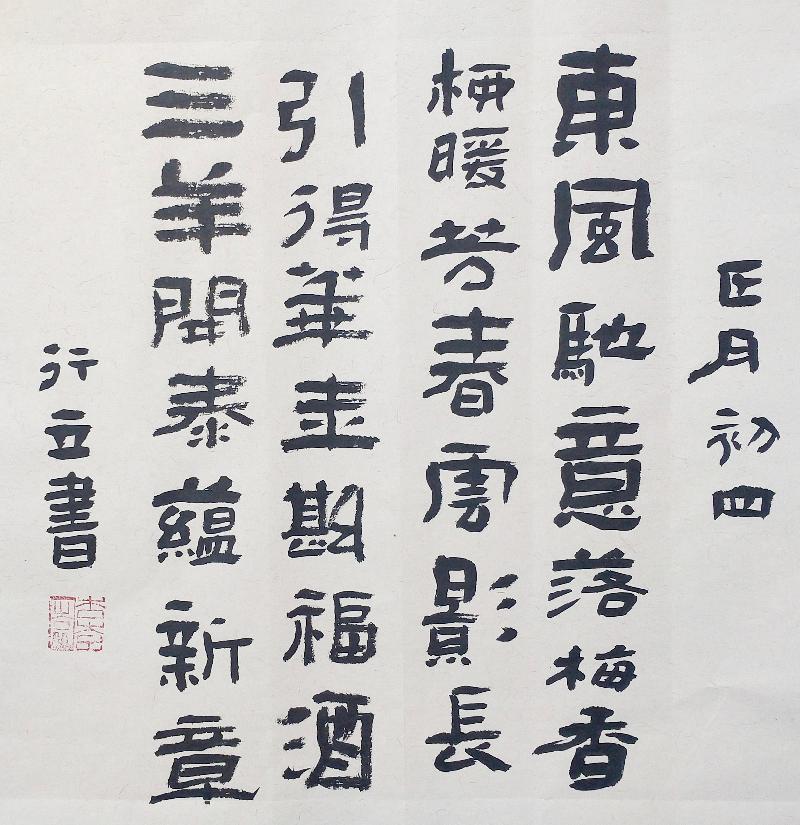 正月初四
東風馳意落梅香
栖暖芳春雲影長
引得華圭斟福酒
三羊開泰蘊新章
行立書